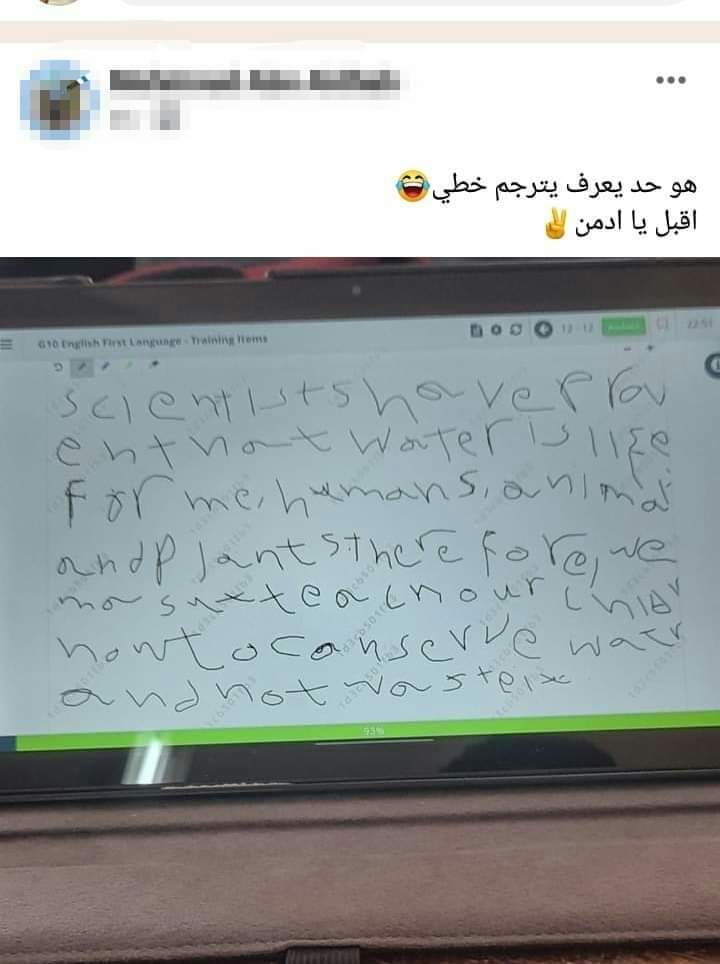 هو حد يعرف يترجم خطي😂
اقبل يا ادمن ✌
G10 English First Language - Training Items
12 - 12
22:51
scientists have prov
en that water is life
for me, humans, animal
and plants. therefore, we
ma sut teach our child
how to conserve watr
and not waste it
93%